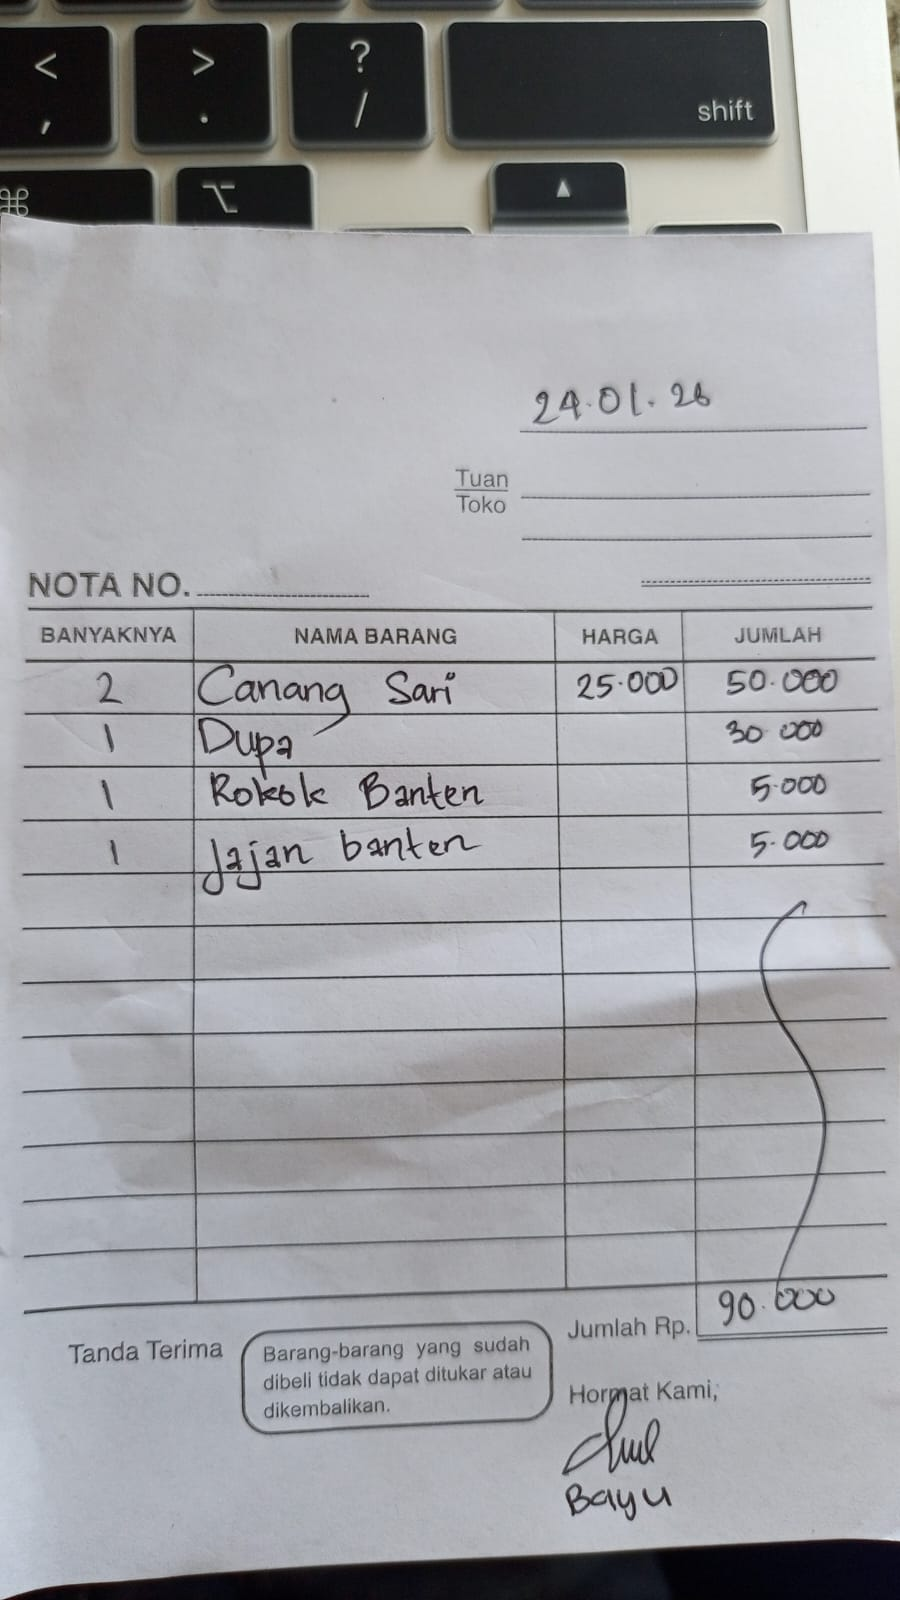 <
,
>
.
?
/
shift
⌘
⌥
▲
24.01.26
Tuan
Toko
NOTA NO.
BANYAKNYA NAMA BARANG HARGA JUMLAH
2 Canang Sari 25.000 50.000
1 Dupa 30.000
1 Rokok Banten 5.000
1 Jajan banten 5.000
Jumlah Rp. 90.000
Tanda Terima
Barang-barang yang sudah
dibeli tidak dapat ditukar atau
dikembalikan.
Hormat Kami,
Bayu